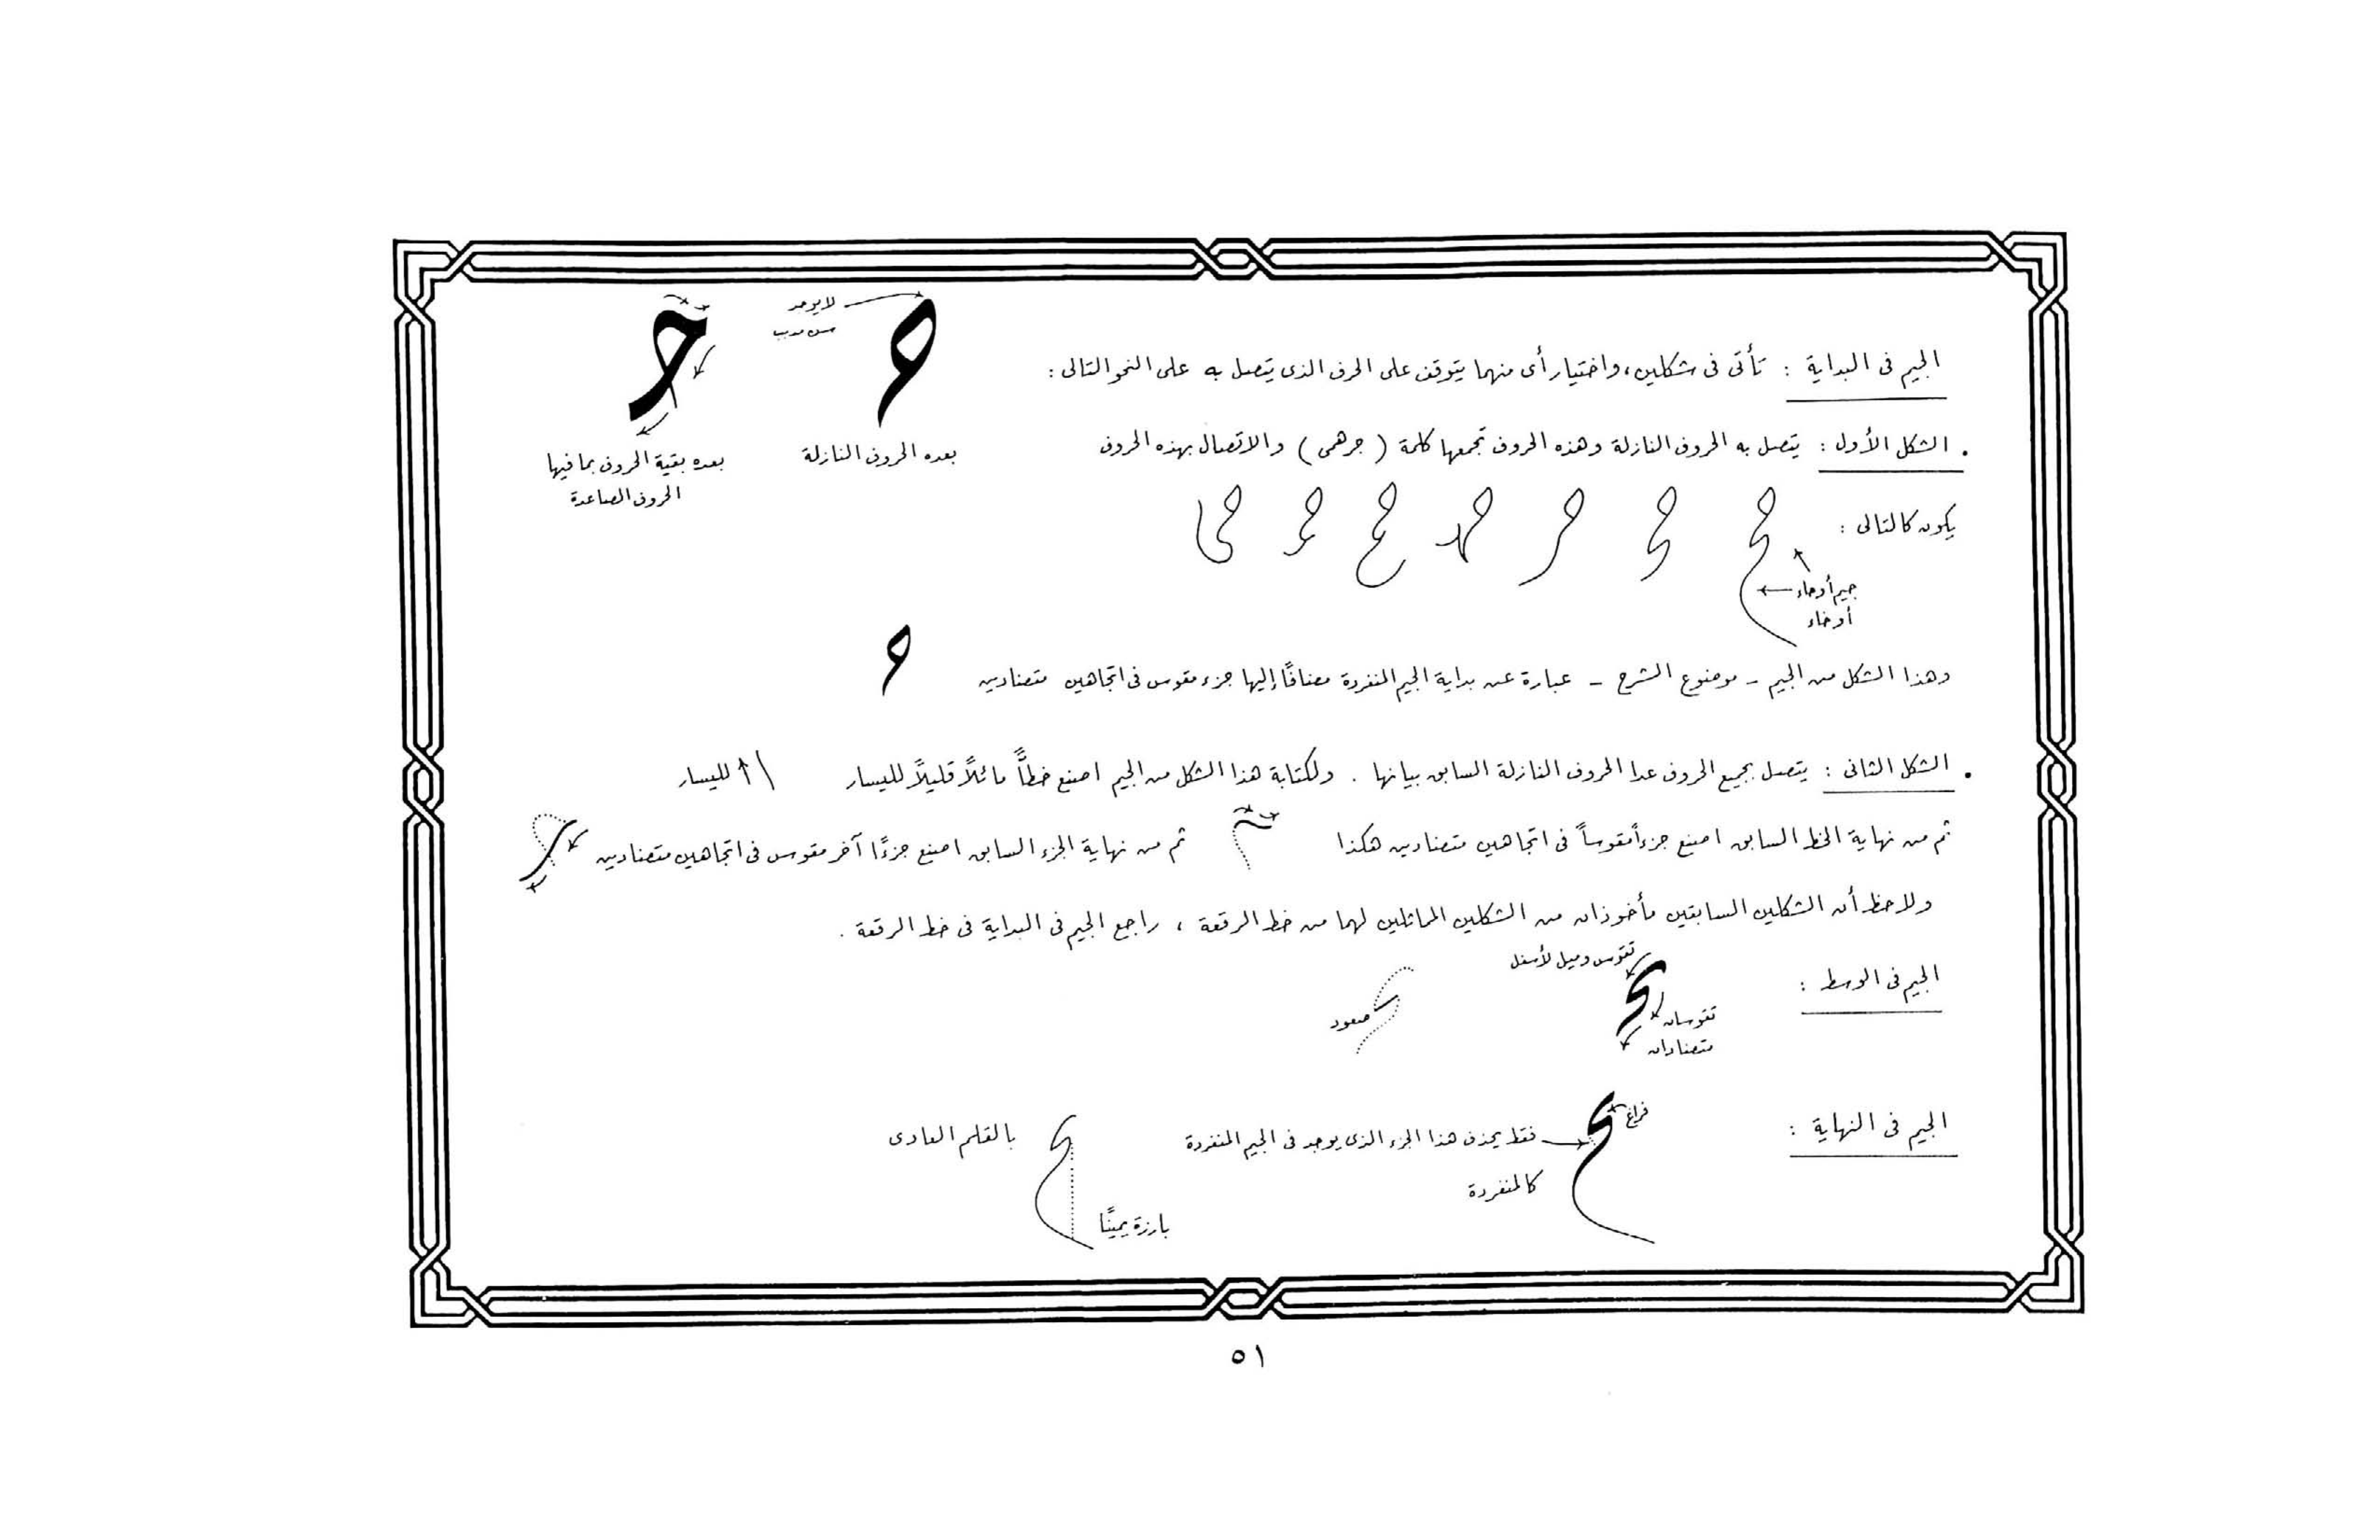 لا يوجد
سن مدبب
الجيم فى البداية : تأتى فى شكلين، واختيار أى منهما يتوقف على الحرف الذى يتصل به على النحو التالى :
بعده الحروف النازلة
بعده بقية الحروف بما فيها
الحروف الصاعدة
. الشكل الأول : يتصل به الحروف النازلة وهذه الحروف تجمعها كلمة ( جرهمى ) والاتصال بهذه الحروف
يكون كالتالى :
جيم أوحاء
أوخاء
وهذا الشكل من الجيم - موضوع الشرح - عبارة عن بداية الجيم المنفردة مضافًا إليها جزء مقوس فى اتجاهين متضادين
. الشكل الثانى : يتصل بجميع الحروف عدا الحروف النازلة السابق بيانها . ولكتابة هذا الشكل من الجيم اصنع خطًّا مائلًا قليلًا لليسار لليسار
ثم من نهاية الخط السابق اصنع جزءاً مقوساً فى اتجاهين متضادين هكذا ثم من نهاية الجزء السابق اصنع جزءًا آخر مقوس فى اتجاهين متضادين
ولاحظ أن الشكلين السابقين مأخوذان من الشكلين المماثلين لهما من خط الرقعة ، راجع الجيم فى البداية فى خط الرقعة .
الجيم فى الوسط :
تقوس وميل لأسفل
تقوسان
متضادان
صعود
الجيم فى النهاية :
فراغ
فقط يحذف هذا الجزء الذى يوجد فى الجيم المنفردة
كالمنفردة
بالقلم العادى
بارزة يمينًا
٥١